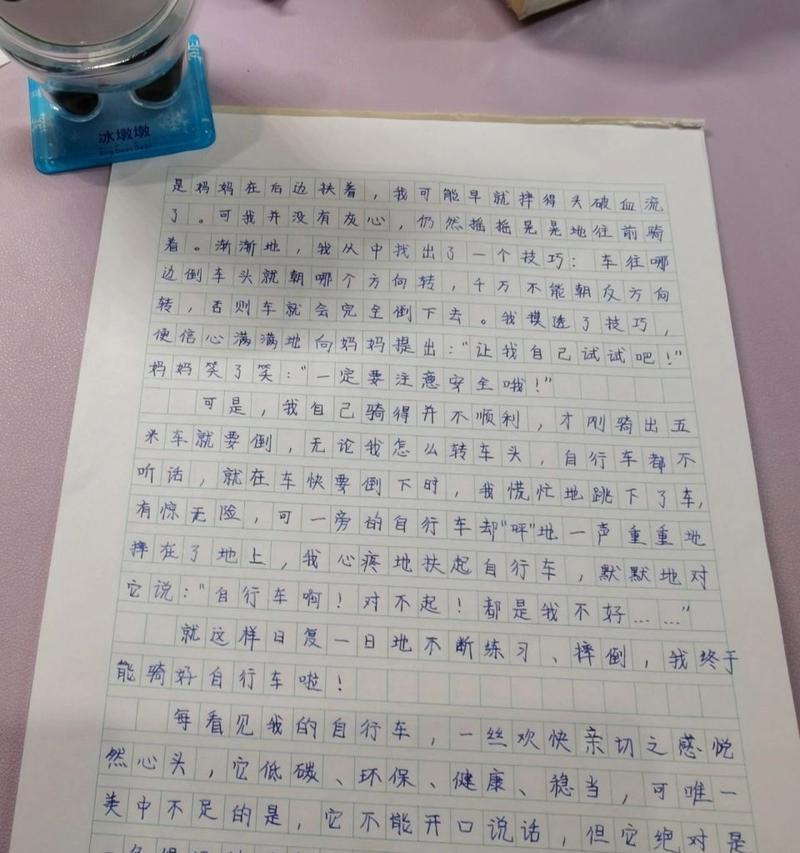 冰墩墩
Bing Dwen Dwen
是妈妈在后边扶着，我可能早就摔得头破血流
了。可我并没有灰心，仍然摇摇晃晃地往前骑
着。渐渐地，我从中找出了一个技巧：车往哪
边倒车头就朝哪个方向转，千万不能朝反方向
转，否则车就会完全倒下去。我摸透了技巧，
便信心满满地向妈妈提出：“让我自己试试吧！”
妈妈笑了笑：“一定要注意安全哦！”
可是，我自己骑得并不顺利，才刚骑出五
米车就要倒，无论我怎么转车头，自行车都不
听话，就在车快要倒下时，我慌忙地跳下了车，
有惊无险，可一旁的自行车却“呯”地一声重重地
摔在了地上，我心疼地扶起自行车，默默地对
它说：“自行车啊！对不起！都是我不好……”
就这样日复一日地不断练习、摔倒，我终于
能骑好自行车啦！
每看见我的自行车，一丝欢快亲切之感悦
然心头，它低碳、环保、健康、稳当，可唯一
美中不足的是，它不能开口说话，但它绝对是